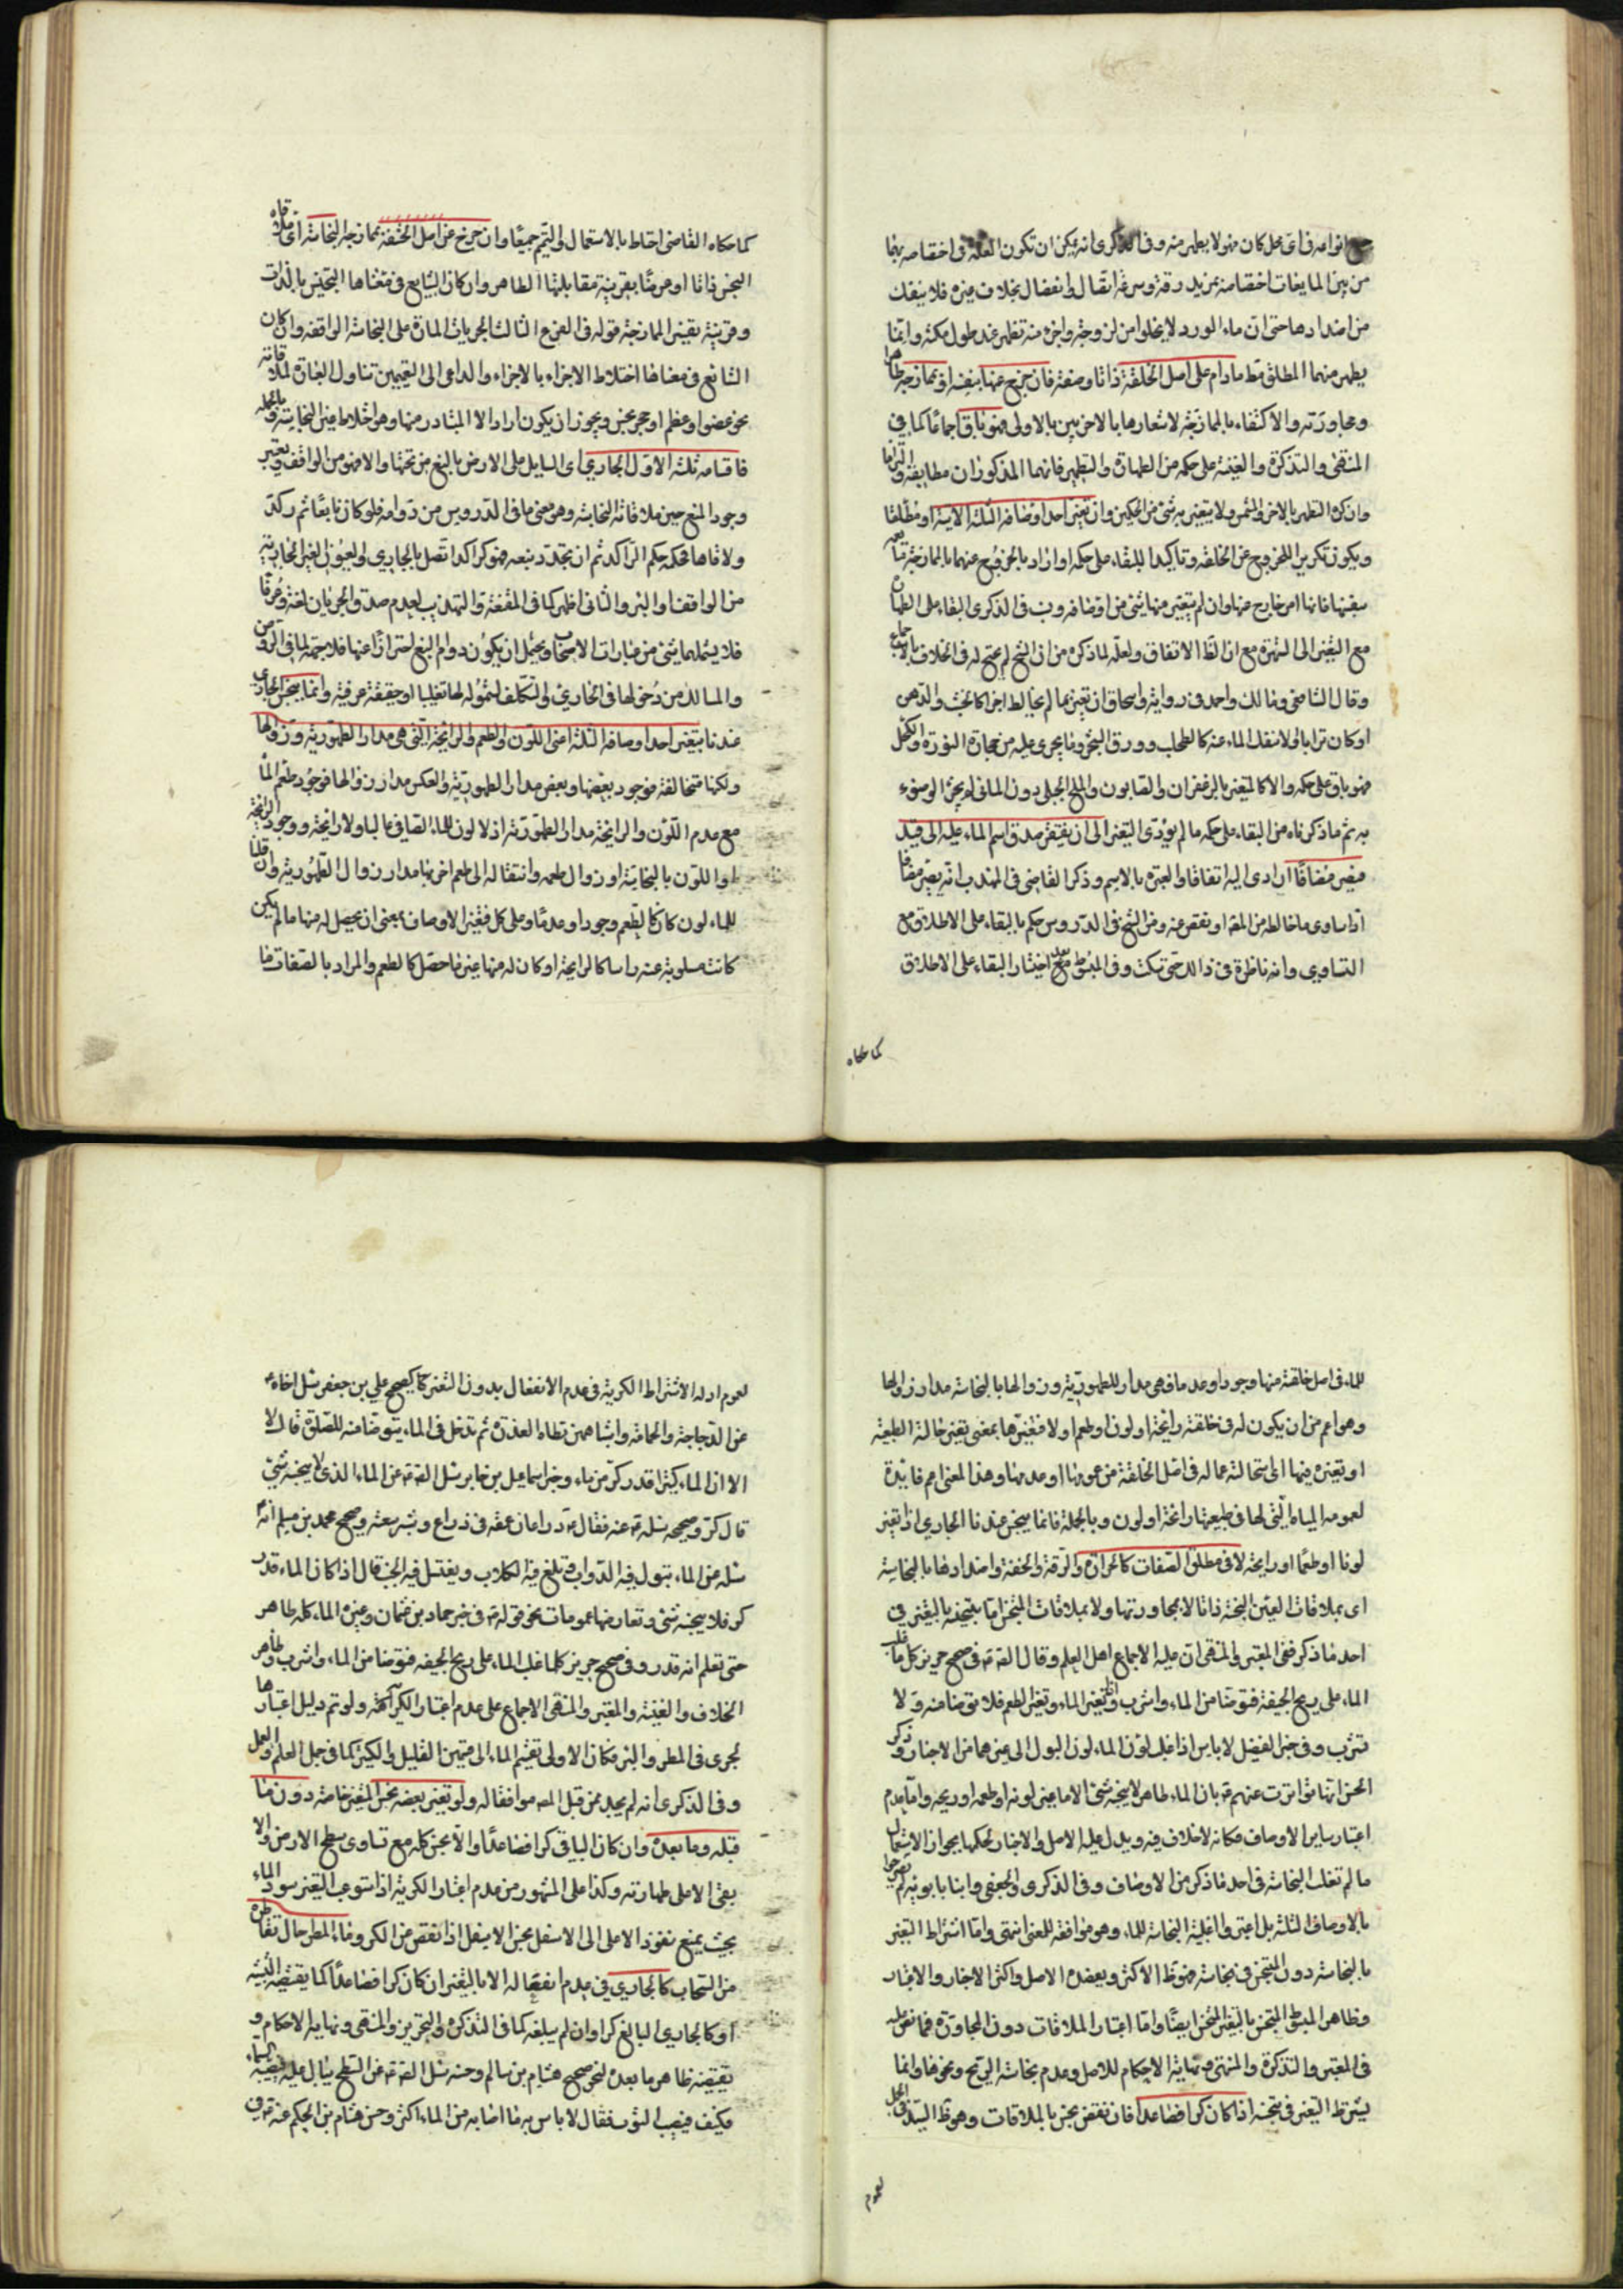 انواعه فى اى محل كان فهو لا يطهر منه وفى الذكرى انه يمكن ان تكون العلة فى اختصاصه بهما
من بين المايعات اختصاصه بمزيد رقة وسرعة اتصال وانفصال بخلاف غيره فلا ينفك
من اضدادها حتى ان ماء الورد لا يخلوا من لزوجة واجزاء منه تظهر عند طول مكثه وانما
يطهر منهما المطلق فقط مادام على اصل الخلقة ذاتا وصفة فان خرج عنها بنفسه او بممازجة طاهرا
ومجاورته والاكتفاء بالممازجة لاشعارها بالاخر بين بالاولى فهو باق اجماعا كما فى
المنتهى والتذكرة والغنية على حكمه من الطهارة والتطهير فانهما المذكوران مطابقة والتزاما
وان كره التطهير بالاخر ولا يتغير به شئ من الحكمين وان تغير احد اوصافه الثلثة الاتية او مطلقا
ويكون تكرير اللخروج عن الخلقة وتاكيدا للبقاء على حكمه او اراد بالخروج عنهما بالممازجة
بقيتها فانها امر خارج عنها وان لم يتغير منها شئ من اوصافه ونب فى الذكرى البقاء على الطهارة
مع التغير الى الشهرة مع ان ظ الاتفاق ولعله لما ذكره من ان الشيخ لم يحتج له فى الخلاف بالاجماع
وقال الشافعى ومالك واحمد فى رواية واسحاق ان تغير بما لم يخالط اجزائه كالخشب والدهن
او كان ترابا ولا ينفك الماء عنه كالطحلب وورق الشجر وما يجرى عليه من حجارة النورة والكحل
فهو باق على حكمه والا كالمتغير بالزعفران والصابون والملح الجبلى دون المائى لم يجز الوضوء
به ثم ما ذكرناه من البقاء على حكمه ما لم يؤدى التغير الى ان يفتقر صدق اسم الماء عليه الى قيد
فيصير مضافا ان ادى اليه اتفاقا والعبرة بالاسم وذكر القاضى فى المهذب انه يصير مضافا
اذا ساوى ما خالطه من المضاف او نقص عنه ومن الشيخ فى الدروس حكم بالبقاء على الاطلاق مع
التساوى وانه ناظره فى ذالك حتى سكت وفى المبسوط اختار البقاء على الاطلاق
كما حكاه
كما حكاه القاضى احتاط بالاستعمال والتيمم جميعا وان خرج عن اصل الخلقة بممازجة النجاسة اى ملاقاة
النجس ذاتا او عرضا بقرينة مقابلتها الطاهر وان كان الشايع فى معناها النجس بالذات
وقرينة بقيد الممازجة قوله فى الفرع الثالث الجريات المارة على النجاسة الواقفة وان كان
الشايع فى معناها اختلاط الاجزاء بالاجزاء والداعى الى التعميمين تناول العبارة لملاقاته
نحو عضوا وعظم او حجر نجس ويجوز ان يكون اراد الا المتبادر منها وهو اختلاط عين النجاسة والجملة
فاقسامه ثلثة الاول الجارى اى السايل على الارض بالنبع من تحتها والا فهو من الواقف ويعتبر
وجود النبع حين ملاقاته النجاسة وهو معنى ما فى الدروس من دوامه فلو كان نابعا ثم ركد
ولاقاها فحكمه حكم الراكد ثم ان تجدد نبعه فهو كراكد اتصل بالجارى والعيون الغير الجارية
من الواقف او البئر والثانى اظهر كما فى المقنعة والتهذيب لعدم صدق الجريان لغة وعرفا
فلا يشملها شئ من عبارات الاصحاب ويحتمل ان يكون دوام النبع احترازا عنها فلا جهة لما فى الروض
والمسالك من دخولها فى الجارى والتكلف لشموله لها تغليبا او حقيقة عرفية وانما ينجس الجارى
عندنا بتغير احد اوصافه الثلثة اعنى اللون والطعم والرائحة التى هى مدار الطهورية وزوالها
ولكنها متخالفة فوجود بعضها وبعض مدار الطهورية والعكس مدار زوالها فوجود طعم الماء
مع عدم اللون والرائحة مدار الطهورية اذ لا لون للماء الصافى غالبا ولا رائحة ووجود الرائحة
او اللون بالنجاسة او زوال طعمه وانتقاله الى طعم اخر بها مدار زوال الطهورية وان قلنا
للماء لون كان كالطعم وجودا وعدما وعلى كل فتغير الاوصاف بمعنى ان يحصل له منها ما لم يكن
كانت مسلوبة عنه راسا كالرايحة او كان له منها غير ما حصل كالطعم والمراد بالصفات ما
للماء فى اصل خلقته منها وجودا وعدما فهى مدار للطهورية وزوالها بالنجاسة مدار زوالها
وهو اعم من ان يكون له فى خلقته رائحة او لون او طعم او لا فتغيرها بمعنى تغير حالته الطبيعية
او تغيره فيها اى استحالته عما له فى اصل الخلقة من عمومها او عدمها وهذا المعنى اعم فائدة
لعمومه المياه التى لها فى طبيعتها رائحة او لون وبالجملة فانما ينجس عندنا الجارى اذا تغير
لونا او طعما او رايحة لا فى مطلق الصفات كالحرارة والرقة والخفة واضدادها بالنجاسة
اى بملاقات العين النجسة ذاتا لا بمجاورتها ولا بملاقات المتنجس اما بتنجيسه بالتغير فى
احد ما ذكر ففى المعتبر والمنتهى ان عليه الاجماع اهل العلم وقال الصادق ع فى صحيح حريز كل ما غلب
الماء على ريح الجيفة فتوضأ من الماء واشرب واذا تغير الماء وتغير الطعم فلا توضأ منه ولا
تشرب وفى خبر الفضيل لا باس اذا غلب لون الماء لون البول الى غيرهما من الاخبار وذكر
الحسن انها تواترت عنهم ع بان الماء طاهر لا ينجسه شئ الا ما غير لونه او طعمه او ريحه واما عدم
اعتبار ساير الاوصاف فكانه لا خلاف فيه ويدل عليه الاصل والاخبار لحكمها بجواز الاستعمال
ما لم تغلب النجاسة فى احد ما ذكر من الاوصاف وفى الذكرى والجعفى وابنا بابويه لم يصرحوا
بالاوصاف الثلثة بل اعتبروا اغلبية النجاسة للماء وهو موافقة للمعنى انتهى واما اشتراط التغير
بالنجاسة دون المتنجس فى نجاسته فهو ظ الاكثر ويعضده الاصل واكثر الاخبار والاعتبار
وظاهر المبسوط التنجس بالتغير المتنجس ايضا واما اعتبار الملاقات دون المجاورة فمما نص عليه
فى المعتبر والتذكرة والمنتهى ونهاية الاحكام للاصل وعدم نجاسة الريح ونحوها وانما
يشترط التغير فى تنجسه اذا كان كرا فصاعدا فان نقص نجس بالملاقات وهو ظ السيد فى الجمل
لعموم
لعموم ادلة الاشتراط الكرية فى عدم الانفعال بدون التغير كما كصحيح على بن جعفر سئل اخاه ع
عن الدجاجة والحمامة واشباههن تطاء العذرة ثم تدخل فى الماء يتوضا منه للصلوة قال لا
الا ان الماء كثيرا قدر كر من ماء وخبر اسماعيل بن جابر سئل الصادق ع عن الماء الذى لا ينجسه شئ
قال كر وصحيحه سئله ع عنه فقال ع ذراعان عمقه فى ذراع وشبر سعته وصحيح محمد بن مسلم انه
سئله عن الماء تبول فيه الدواب وتلغ فيه الكلاب ويغتسل فيه الجنب قال اذا كان الماء قدر
كر فلا ينجسه شئ وتعارضها عمومات نحو قوله ع فى خبر حماد بن عثمان وغيره الماء كله طاهر
حتى تعلم انه قذر وفى صحيح حريز كلما غلب الماء على ريح الجيفه فتوضا من الماء واشرب وظاهر
الخلاف والغنية والمعتبر والمنتهى الاجماع على عدم اعتبار الكرية ولو تم دليل اعتبارها
لجرى فى المطر والبئر فكان الاولى تقسيم الماء الى قسمين القليل والكثير كما فى جمل العلم والعمل
وفى الذكرى انه لم يجد ممن قبل المص موافقا له ولو تغير بعضه نجس المتغير خاصة دون ما
قبله وما بعده وان كان الباقى كرا فصاعدا والا نجس كله مع تساوى سطح الارض والا
بقى الاعلى طهارته وكذا على المشهور من عدم اعتبار الكرية اذا استوعب التغير عمود الماء
بحيث يمنع نفوذ الاعلى الى الاسفل نجس الاسفل اذا نقص من الكر وماء المطر حال تقاطره
من السحاب كالجارى فى عدم انفعاله الا بالتغير ان كان كرا فصاعدا كما يقتضيه التشبيه
او كالجارى البالغ كرا وان لم يبلغه كما فى التذكرة والتحرير والمنتهى ونهاية الاحكام و
يقتضيه ظاهر ما بعده لنحو صحيح هشام بن سالم وحسنه سئل الصادق ع عن السطح يبال عليه فتصيبه السماء
فيكف فيصيب الثوب فقال لا باس به ما اصابه من الماء اكثر وحسن هشام بن الحكم عنه ع فى